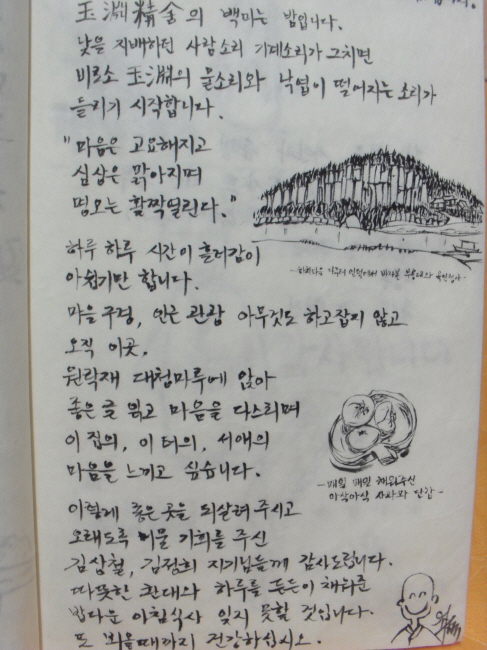 玉淵精舍의 백미는 밤입니다.
낮을 지배하던 사람소리 기계소리가 그치면
비로소 玉淵의 물소리와 낙엽이 떨어지는 소리가
들리기 시작합니다.
"마음은 고요해지고
심상은 맑아지며
명오는 활짝열린다."
하루 하루 시간이 흘러감이
아쉽기만 합니다.
마을 구경, 인근 관광 아무것도 하고잡지 않고
오직 이곳,
원락재 대청마루에 앉아
좋은 글 읽고 마음을 다스리며
이 집의, 이 터의, 서애의
마음을 느끼고 싶습니다.
- 매일 매일 채워주신
아삭아삭 사과와 단감 -
이렇게 좋은 곳을 되살려 주시고
오래도록 머물 기회를 주신
김상철, 김정희 지기님들께 감사드립니다.
따뜻한 환대와 하루를 든든이 채워준
밥다운 아침식사 잊지 못할 것입니다.
또 뵈올때까지 건강하십시오.